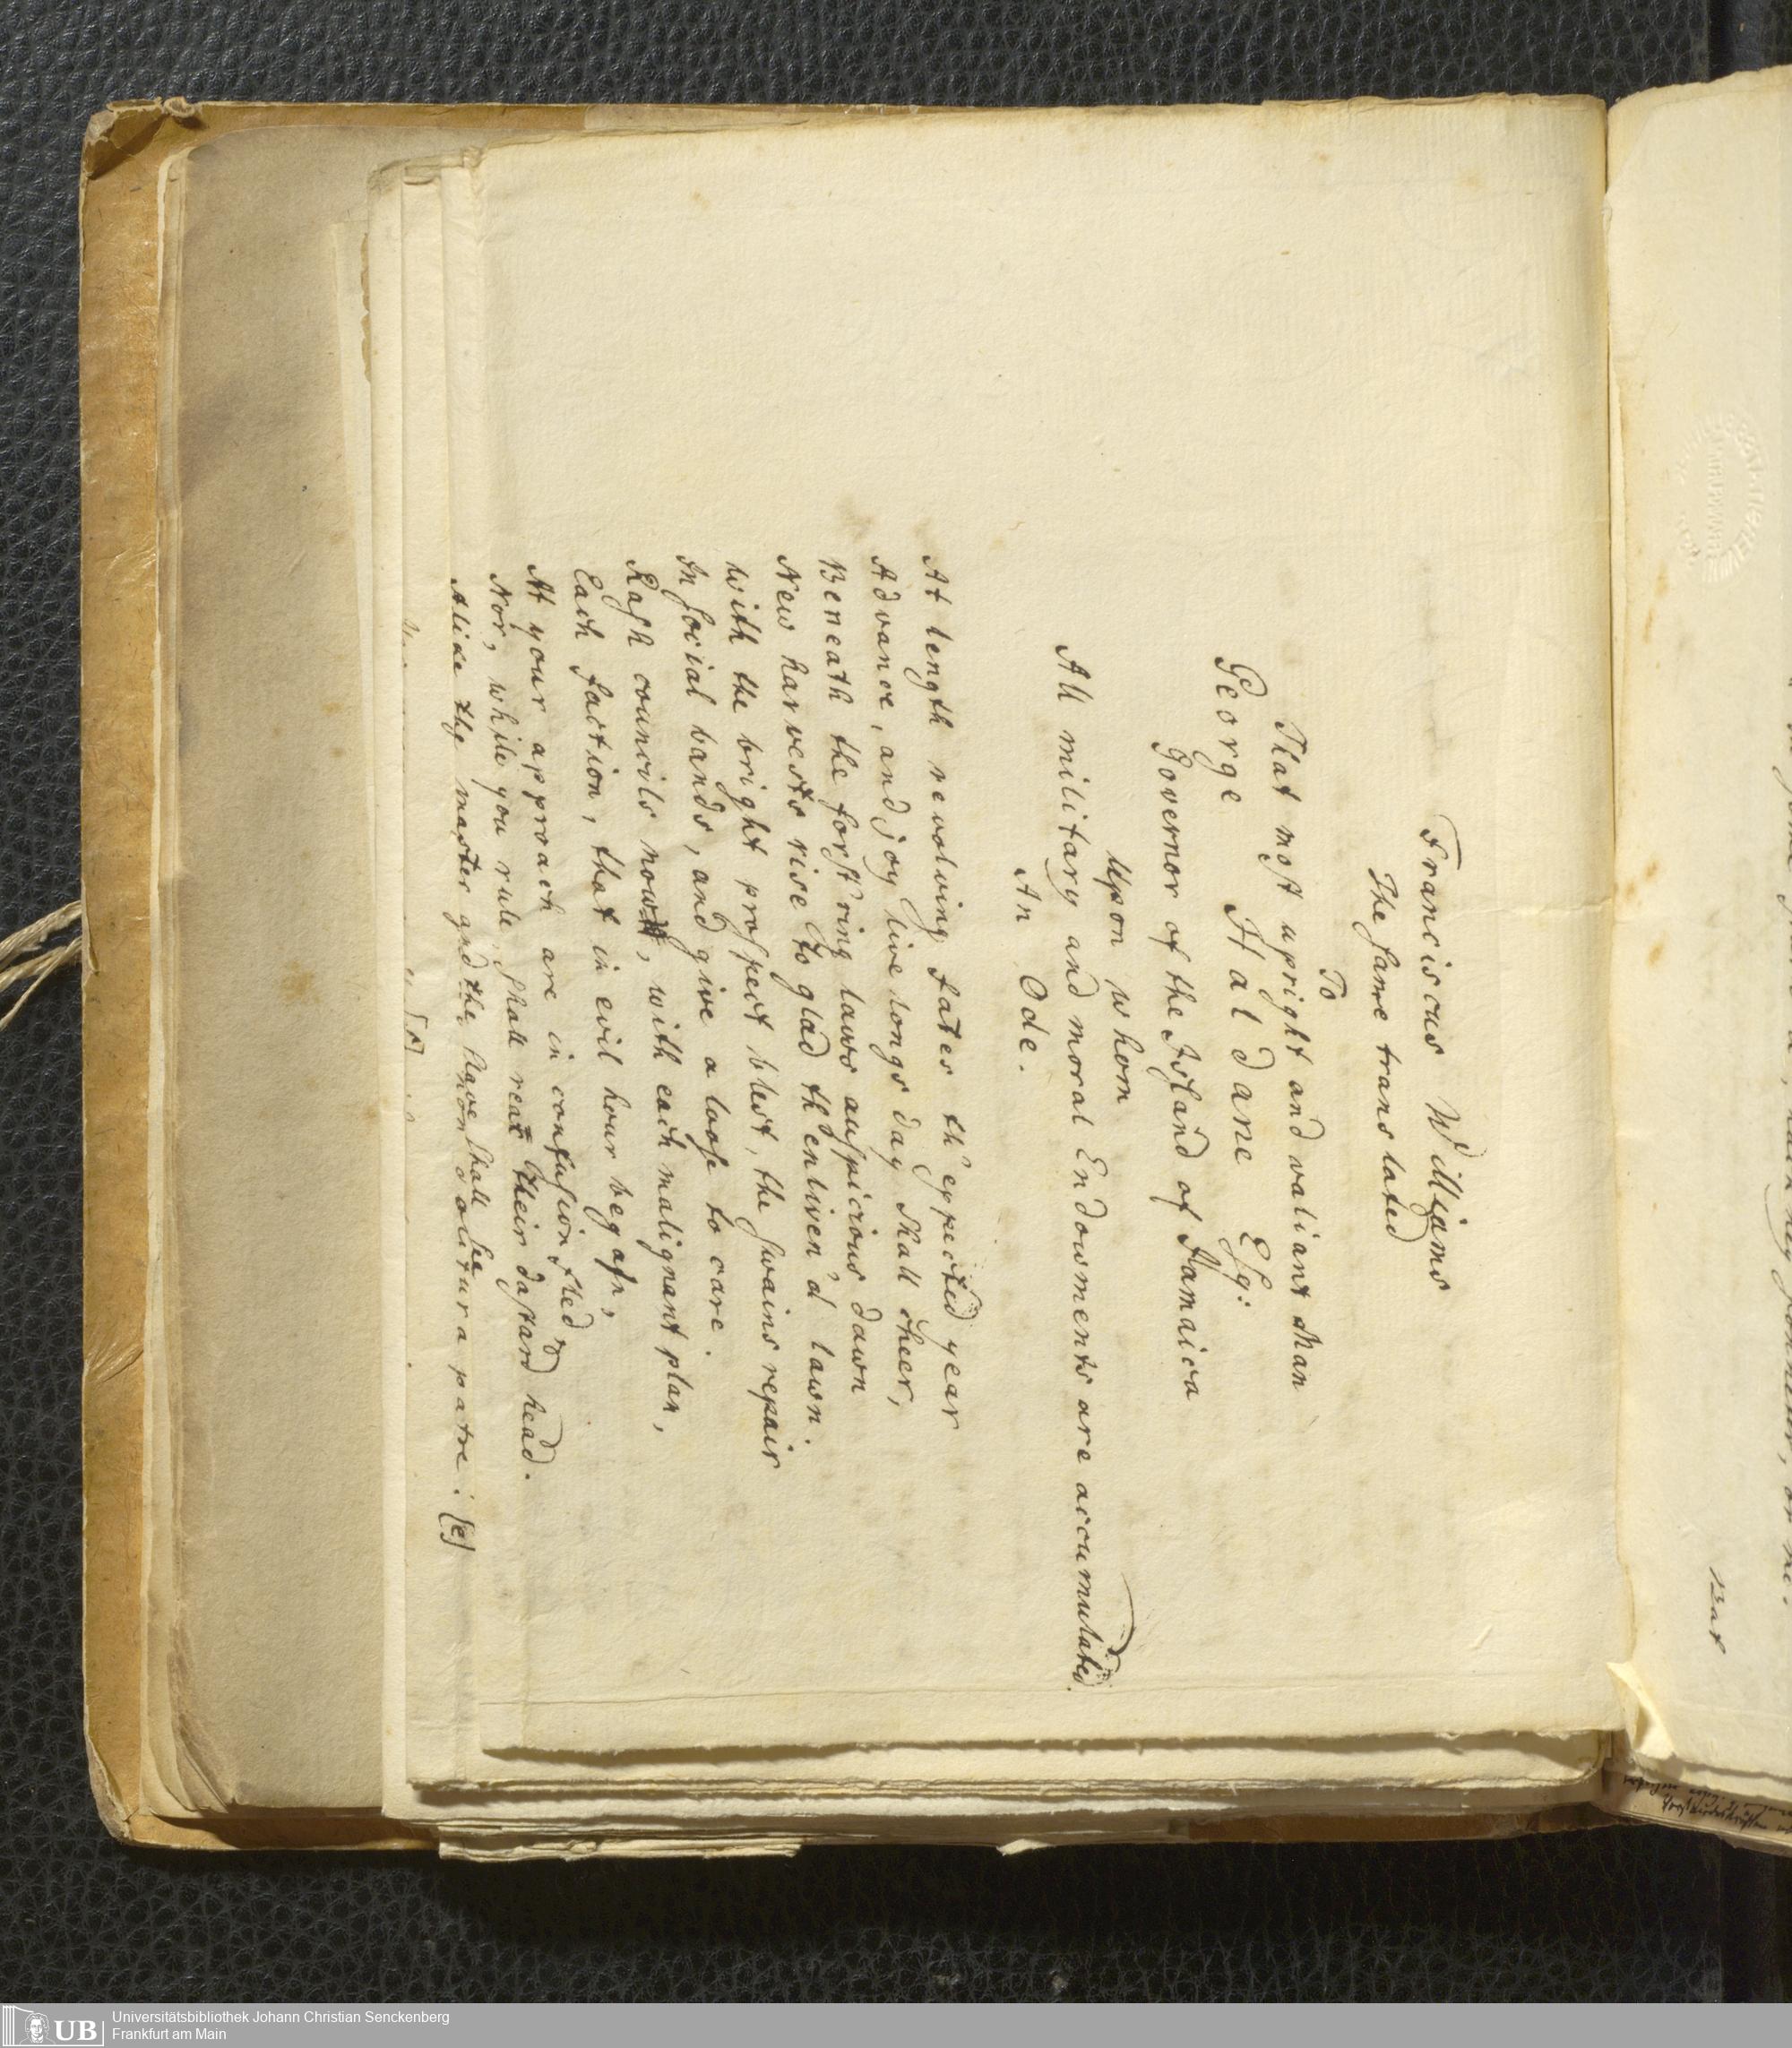 Franciscus Williams
The same translated
To
That most upright and valiant Man
George Haldane Esq:
Governor of the Island of Jamaica
Upon whom
All military and moral Endowments are accumulated.
An Ode.
At length revolving fates th' expected year
Advance, and joy live long's day shall cheer,
Beneath the forst'ring laws auspicious dawn
New harvests rise to glad th' enliven'd lawn.
With the bright prospect blest, the swains repair
In social bands, and give a loose to care.
Rash councils now, with each malignant plan,
Each faction, that in evil hour began,
At your approach are in confusion fled,
Nor, while you rule, shall rear their dastard head.
Alike the master and the slave shall see
Universitätsbibliothek Johann Christian Senckenberg
Frankfurt am Main
UB